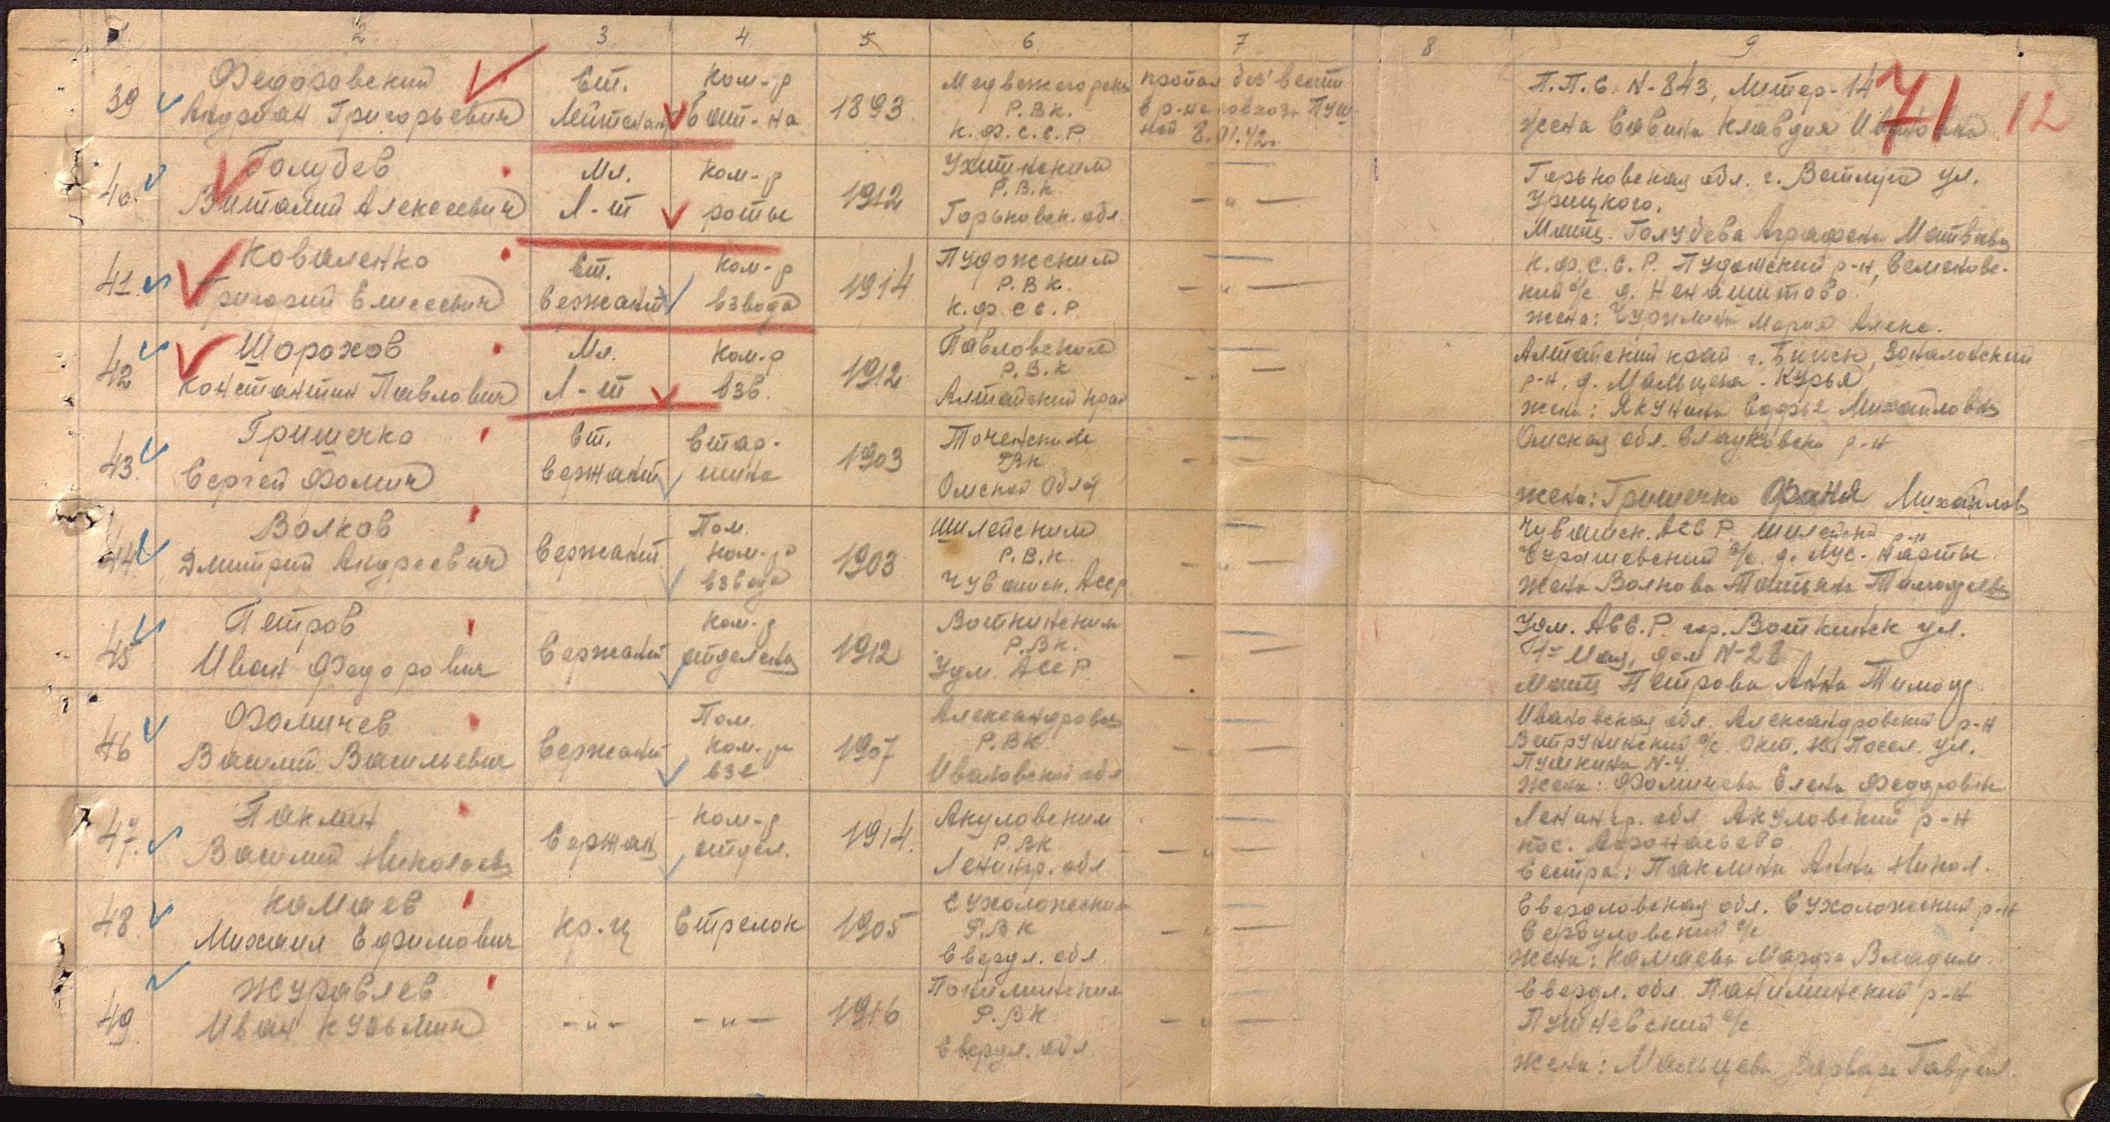 1 2 3 4 5 6 7 8 9
71 12
39 Федоровский Андриан Григорьевич Ст. Лейтенант Ком-р бат-на 1893 Медвежегорским Р.В.К. К.Ф.С.С.Р. пропал без вести 8.01.42г. П.П.С. N-843, Литер-14
жена Савина Клавдия Ивановна
40. Голубев Виталий Алексеевич Мл. Л-т Ком-р роты 1912 Ухтинским Р.В.К. Горьковск. обл. -"- Горьковская обл. г. Ветлуга ул.
Урицкого.
Мать. Голубева Аграфена Матвеев
41. Коваленко Григорий Елисеевич Ст. Сержант Ком-р взвода 1914 Пудожским Р.В.К. К.Ф.С.С.Р. -"- К.Ф.С.С.Р. Пудожский р-н,
с/с д.
жена: Мария Алекс.
42 Шорохов Константин Павлович Мл. Л-т Ком-р взв. 1912 Павловским Р.В.К Алтайский край -"- Алтайский край г. Бийск,
р-н, д. Курья
жена: Якунина Софья Михайловна
43. Гришечко Сергей Фомич Ст. Сержант Старшина 1903 РВК Омской Обл. -"- Омская обл. р-н
жена: Гришечко Фаня Михайлов
44. Волков Дмитрий Андреевич Сержант Пом. Ком-ра взвода 1903 Р.В.К. Чувашск. АССР -"- Чувашск. АССР. р-н
с/с. д.
жена Волкова Татьяна Тимофеевна
45 Петров Иван Федорович Сержант Ком-р отделения 1912 Воткинским Р.В.К. Удм. АССР. -"- Удм. АССР. гор. Воткинск ул.
1-е Мая, дом N-28
Мать Петрова Анна Тимоф
46 Фомичев Василий Васильевич Сержант Пом. Ком-ра взв 1907 Александровск Р.В.К Ивановской обл -"- Ивановская обл. Александровский р-н
с/с. Окт. Посел. ул.
Пушкина N-4.
жена: Фомичева Елена Федоровн
47. Паклин Василий Николаевич Сержан Ком-р отдел. 1914. Акуловским Р.В.К Ленингр. обл -"- Ленингр. обл Акуловский р-н
пос. Афонасьево
Сестра: Паклина Анна Никол.
48. Камаев Михаил Ефимович Кр-ц Стрелок 1905 Сухоложским Р.В.К Свердл. обл. -"- Свердловская обл. Сухоложский р-н
с/с
жена: Камаева Марфа Владим.
49 Журавлев Иван Кузьмич -"- -"- 1916 Р.В.К Свердл. обл -"- Свердл. обл р-н
с/с
жена: Мальцева Варвара Гаврил.